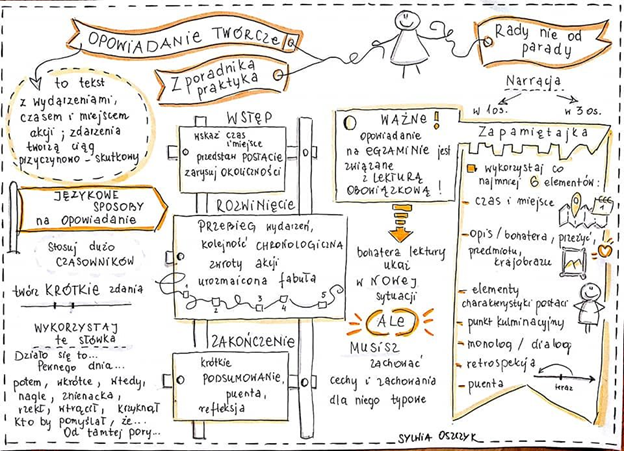 OPOWIADANIE TWÓRCZE
Z poradnika
praktyka
Rady nie od
parady
to tekst
z wydarzeniami,
czasem i miejscem
akcji; zdarzenia
tworzą ciąg
przyczynowo-skutkowy
JĘZYKOWE
SPOSOBY
na opowiadanie
Stosuj dużo
CZASOWNIKÓW
twórz KRÓTKIE zdania
WYKORZYSTAJ
te słówka
Działo się to...
Pewnego dnia...
potem, wkrótce, wtedy,
nagle, znienacka,
rzekł, wtrącił, krzyknął
Kto by pomyślał, że...
Od tamtej pory...
WSTĘP
wskaż czas
i miejsce
przedstaw POSTACIE
zarysuj OKOLICZNOŚCI
ROZWINIĘCIE
PRZEBIEG wydarzeń,
kolejność CHRONOLOGICZNA
zwroty akcji
urozmaicona fabuła
1 2 3 4 5
ZAKOŃCZENIE
krótkie
PODSUMOWANIE,
puenta,
refleksja
WAŻNE!
opowiadanie
na EGZAMINIE jest
związane
z LEKTURĄ
OBOWIĄZKOWĄ!
bohatera lektury
ukaż
w NOWEJ
sytuacji
ALE
MUSISZ
zachować
cechy i zachowania
dla niego typowe
Narracja
w 1 os.
w 3 os.
Zapamiętajka
wykorzystaj co
najmniej 6 elementów:
- czas i miejsce
- opis/bohatera, przeżyć,
przedmiotu,
krajobrazu
- elementy
charakterystyki postaci
- punkt kulminacyjny
- monolog/dialog
- retrospekcja
- puenta
teraz
SYLWIA OSZCZYK